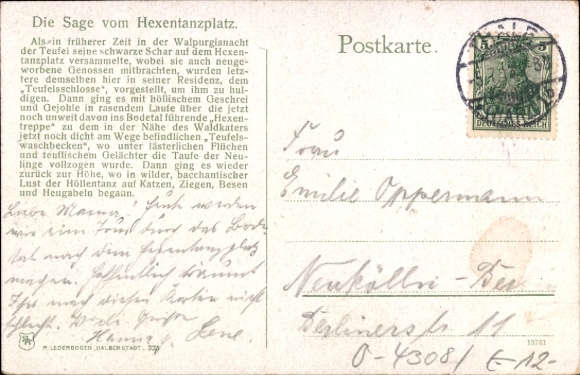 Die Sage vom Hexentanzplatz.
Als in früherer Zeit in der Walpurgisnacht
der Teufel seine schwarze Schar auf dem Hexen-
tanzplatz versammelte, wobei sie auch neuge-
worbene Genossen mitbrachten, wurden letz-
tere demselben hier in seiner Residenz, dem
„Teufelsschlosse“, vorgestellt, um ihm zu hul-
digen. Dann ging es mit höllischem Geschrei
und Gejohle in rasendem Laufe über die jetzt
noch unweit davon ins Bodetal führende „Hexen-
treppe“ zu dem in der Nähe des Waldkaters
jetzt noch dicht am Wege befindlichen „Teufels-
waschbecken“, wo unter lästerlichen Flüchen
und teuflischem Gelächter die Taufe der Neu-
linge vollzogen wurde. Dann ging es wieder
zurück zur Höhe, wo in wilder, bacchantischer
Lust der Höllentanz auf Katzen, Ziegen, Besen
und Heugabeln begann.
Liebe Mama! Heute werden
wir eine Tour durch das Bode-
tal nach dem Hexentanzplatz
machen. Hoffentlich träumt
Ihr nach diesen Karten nicht
schlecht. Viele Grüße
Hanna u. Lene.
R. LEDERBOGEN, HALBERSTADT. 335
Postkarte.
THALE
5 5
DEUTSCHES REICH
Frau
Emilie Oppermann
Neukölln-Ber
Berlinerstr 11
13761
O-4308/ E-12-